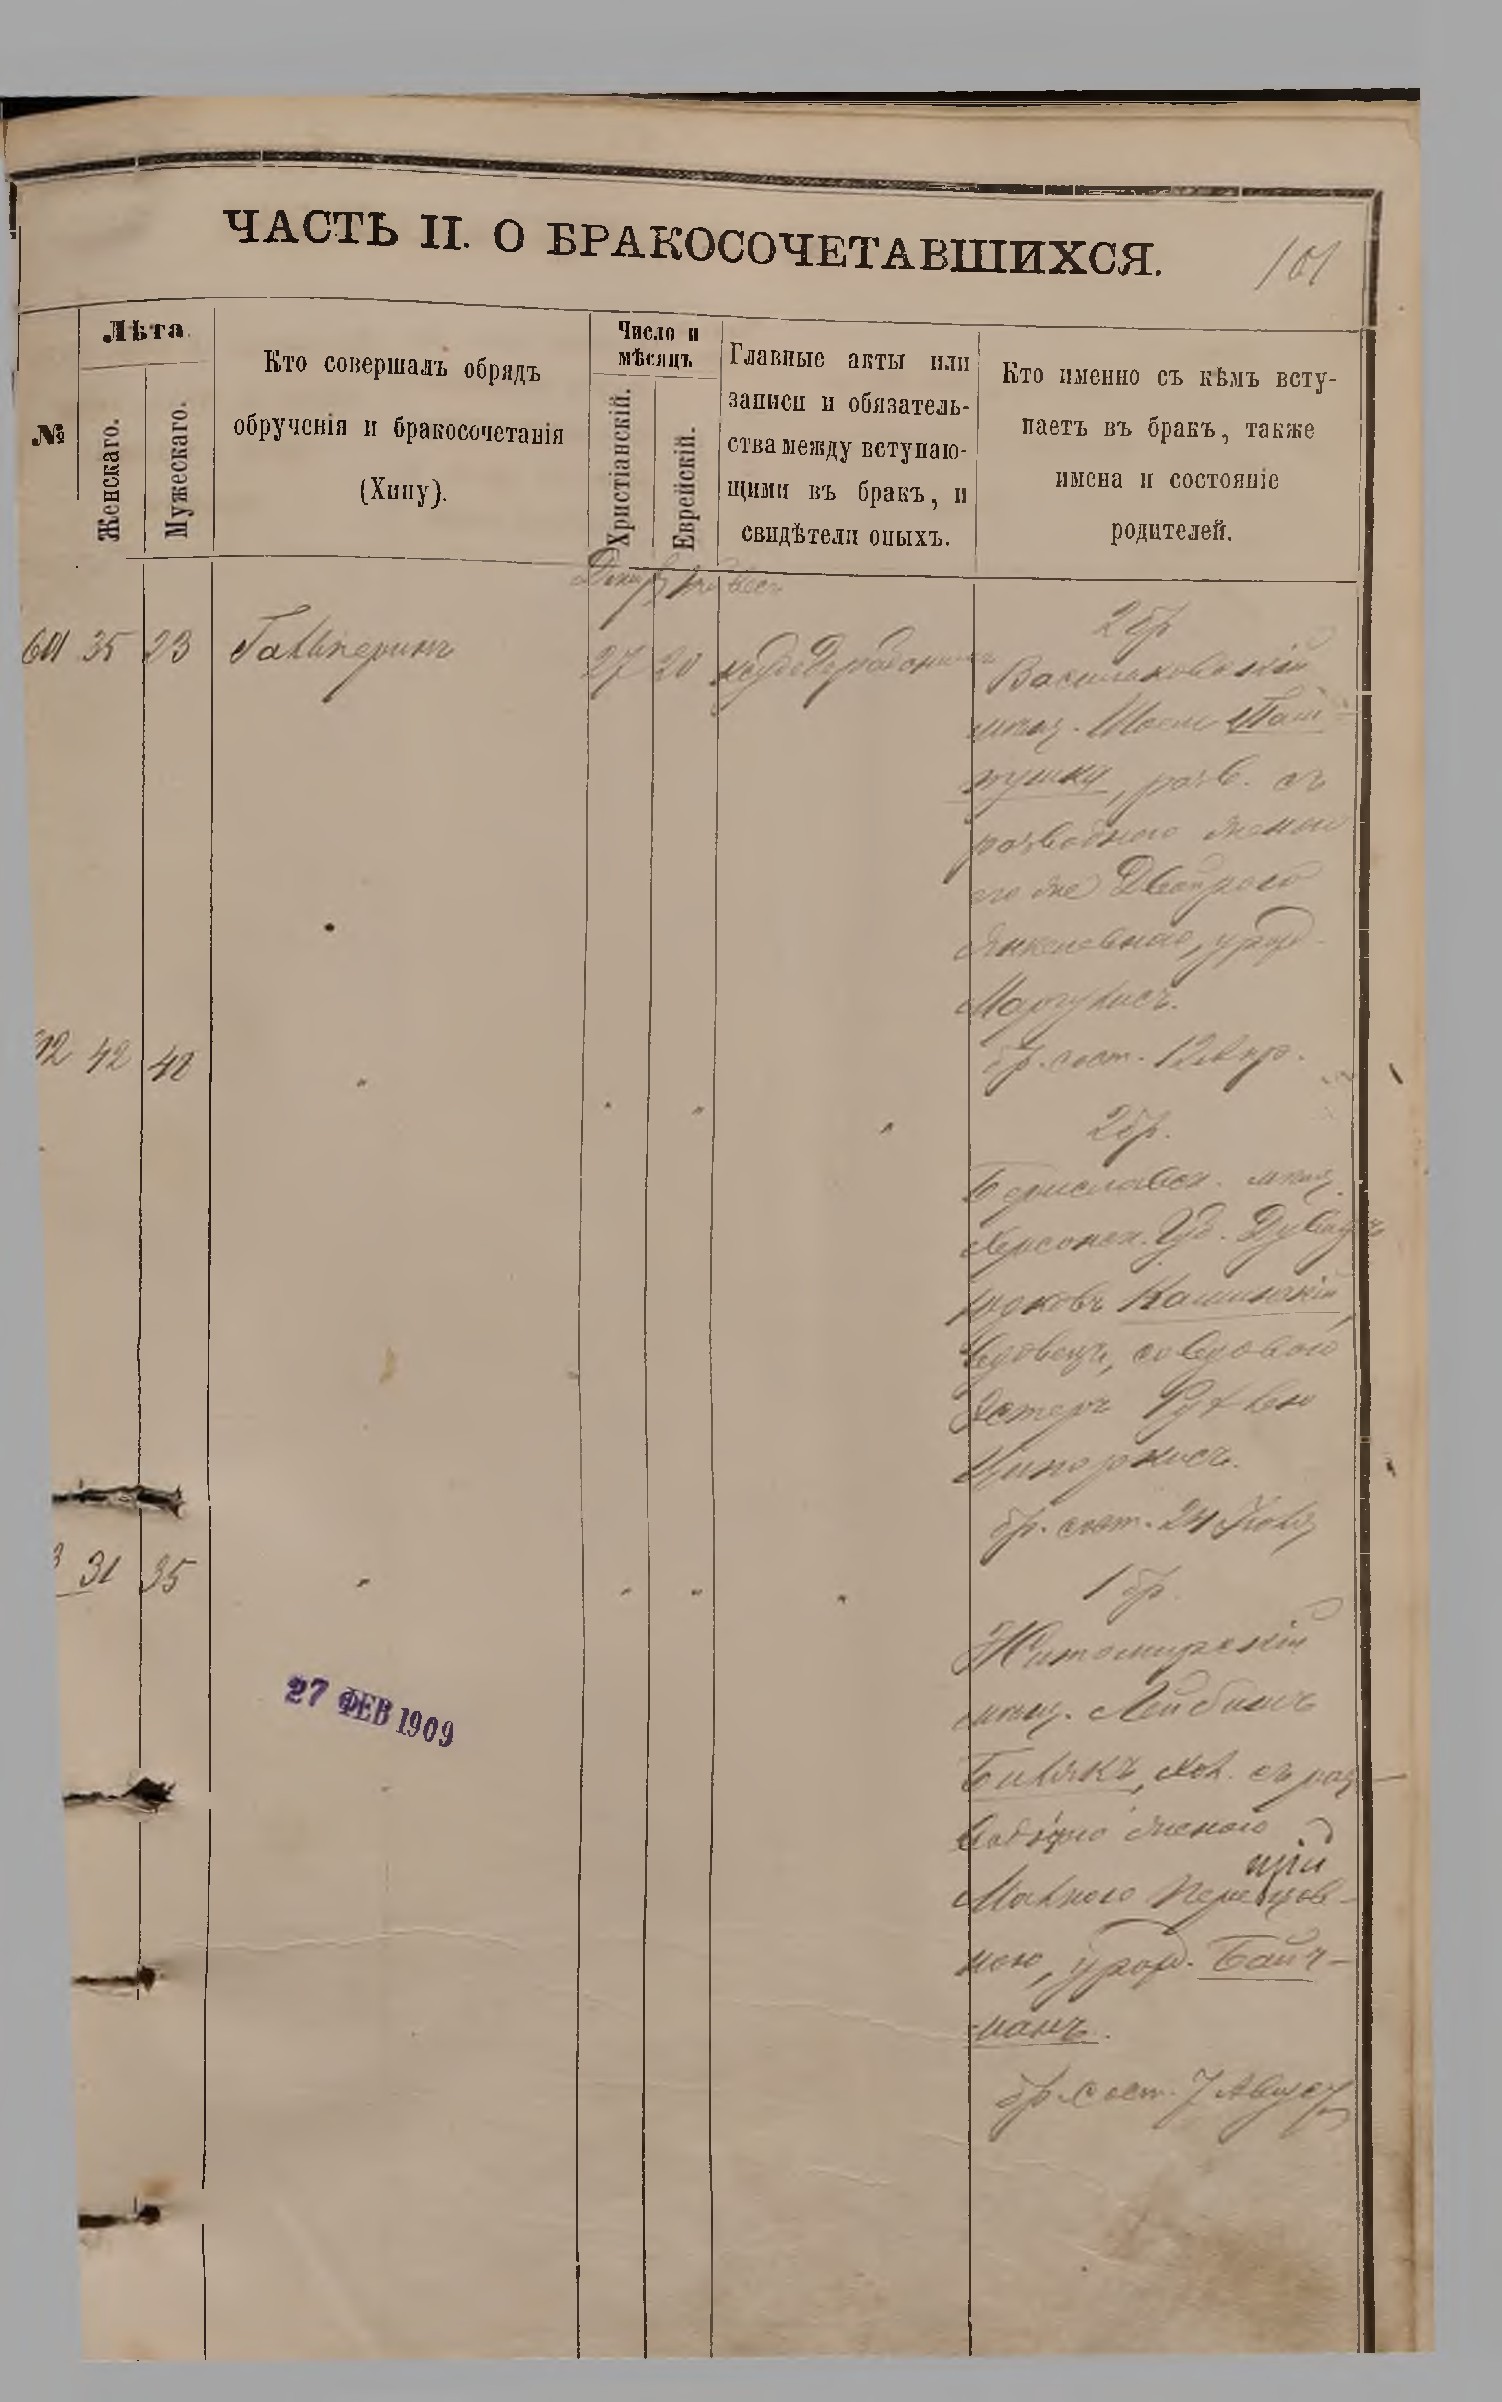 ЧАСТЬ II. О БРАКОСОЧЕТАВШИХСЯ.
101
№
Лѣта
Женскаго.
Мужескаго.
Кто совершалъ обрядъ
обрученія и бракосочетанія
(Хипу).
Число и
мѣсяцъ
Христіанскій.
Еврейскій.
Главные акты или
записи и обязатель-
ства между вступаю-
щими въ бракъ, и
свидѣтели оныхъ.
Кто именно съ кѣмъ всту-
паетъ въ бракъ, также
имена и состояніе
родителей.
601 35 23 Гальперинъ 27 20
2 бр
Васильковскій
мѣщ.
, разв. съ
разводною женою
его же Двойрою
Янкелевною, урод.
Маргулисъ.
бр. сост. 12 Апр.
42 42
2 бр.
Бериславск. мѣщ.
Херсонск. Губ.
Каминскій,
вдовецъ, со вдовою
Эстеръ Рухлею
Ципоркисъ.
бр. сост. 24
31 35
1 бр.
Житомирскій
мѣщ. Лейбишъ
Билякъ, хол. съ раз-
женою
цій
Малкою Перецов-
ною, урод. Байч-
манъ.
бр. сост. 7 Август
27 ФЕВ 1909